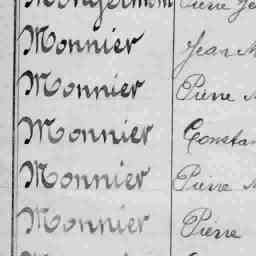 Monnier Jean
Monnier Pierre
Monnier Constan
Monnier Pierre
Monnier Pierre